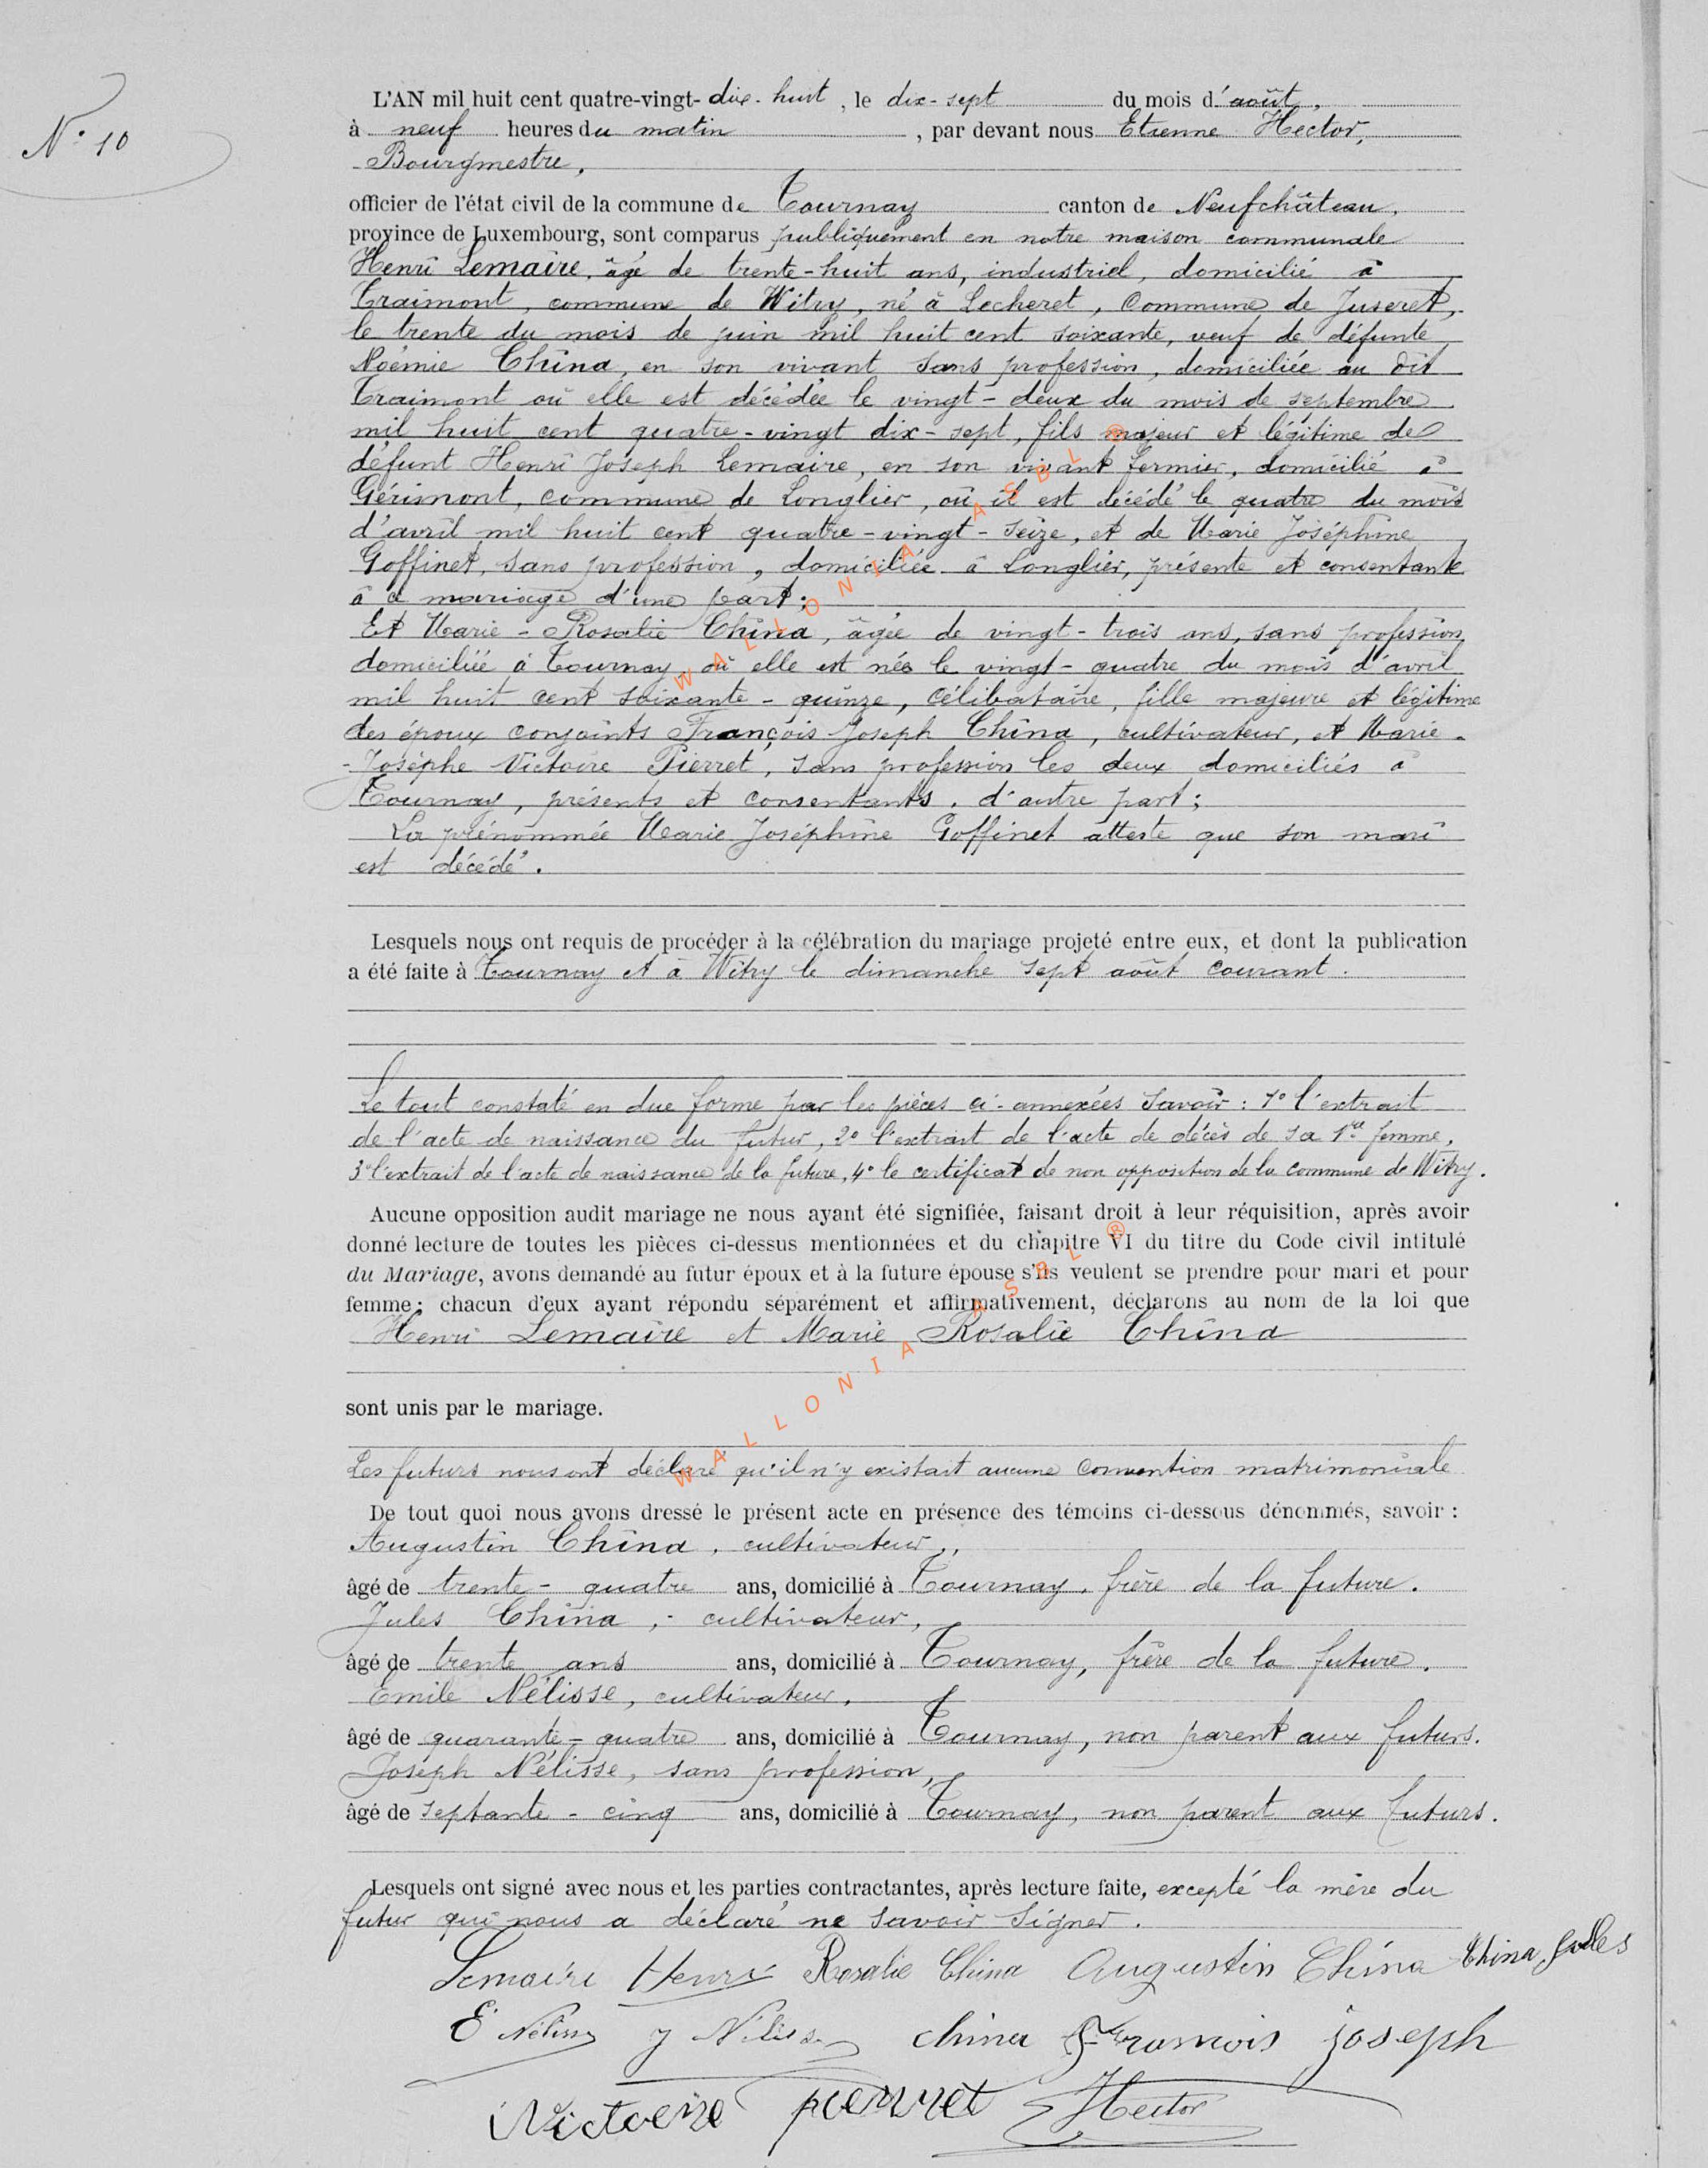 N.° 10
L'AN mil huit cent quatre-vingt-dix-huit, le dix-sept du mois d'août,
à neuf heures du matin, par devant nous Etienne Hector,
Bourgmestre,
officier de l'état civil de la commune de Tournay canton de Neufchâteau,
province de Luxembourg, sont comparus publiquement en notre maison communale
Henri Lemaire, âgé de trente-huit ans, industriel, domicilié à
Traimont, commune de Witry, né à Lecheret, commune de Juseret,
le trente du mois de juin mil huit cent soixante, veuf de défunte
Noémie China, en son vivant sans profession, domiciliée au dit
Traimont où elle est décédée le vingt-deux du mois de septembre
mil huit cent quatre-vingt dix-sept, fils majeur et légitime de
défunt Henri Joseph Lemaire, en son vivant fermier, domicilié à
Gérimont, commune de Longlier, où il est décédé le quatre du mois
d'avril mil huit cent quatre-vingt-seize, et de Marie Joséphine
Goffinet, sans profession, domiciliée à Longlier, présente et consentante
à ce mariage d'une part;
Et Marie-Rosalie China, âgée de vingt-trois ans, sans profession,
domiciliée à Tournay, où elle est née le vingt-quatre du mois d'avril
mil huit cent soixante-quinze, célibataire, fille majeure et légitime
des époux conjoints François Joseph China, cultivateur, et Marie-
-Josèphe Victoire Pierret, sans profession les deux domiciliés à
Tournay, présents et consentants, d'autre part;
La prénommée Marie Joséphine Goffinet atteste que son mari
est décédé.
Lesquels nous ont requis de procéder à la célébration du mariage projeté entre eux, et dont la publication
a été faite à Tournay et à Witry le dimanche sept août courant.
Le tout constaté en due forme par les pièces ci-annexées savoir: 1° l'extrait
de l'acte de naissance du futur, 2° l'extrait de l'acte de décès de sa 1re femme,
3° l'extrait de l'acte de naissance de la future, 4° le certificat de non opposition de la commune de Witry.
Aucune opposition audit mariage ne nous ayant été signifiée, faisant droit à leur réquisition, après avoir
donné lecture de toutes les pièces ci-dessus mentionnées et du chapitre VI du titre du Code civil intitulé
du Mariage, avons demandé au futur époux et à la future épouse s'ils veulent se prendre pour mari et pour
femme; chacun d'eux ayant répondu séparément et affirmativement, déclarons au nom de la loi que
Henri Lemaire et Marie Rosalie China
sont unis par le mariage.
Les futurs nous ont déclaré qu'il n'y existait aucune convention matrimoniale
De tout quoi nous avons dressé le présent acte en présence des témoins ci-dessous dénommés, savoir :
Augustin China, cultivateur,
âgé de trente-quatre ans, domicilié à Tournay, frère de la future.
Jules China, cultivateur,
âgé de trente ans ans, domicilié à Tournay, frère de la future.
Emile Nélisse, cultivateur,
âgé de quarante-quatre ans, domicilié à Tournay, non parent aux futurs.
Joseph Nélisse, sans profession,
âgé de septante-cinq ans, domicilié à Tournay, non parent aux futurs.
Lesquels ont signé avec nous et les parties contractantes, après lecture faite, excepté la mère du
futur qui nous a déclaré ne savoir signer.
Lemaire Henri Rosalie China Augustin China China Jules
E Nélisse J Nélisse china François joseph
Victoire pierret Hector
WALLONIA ASBL ®
WALLONIA ASBL ®